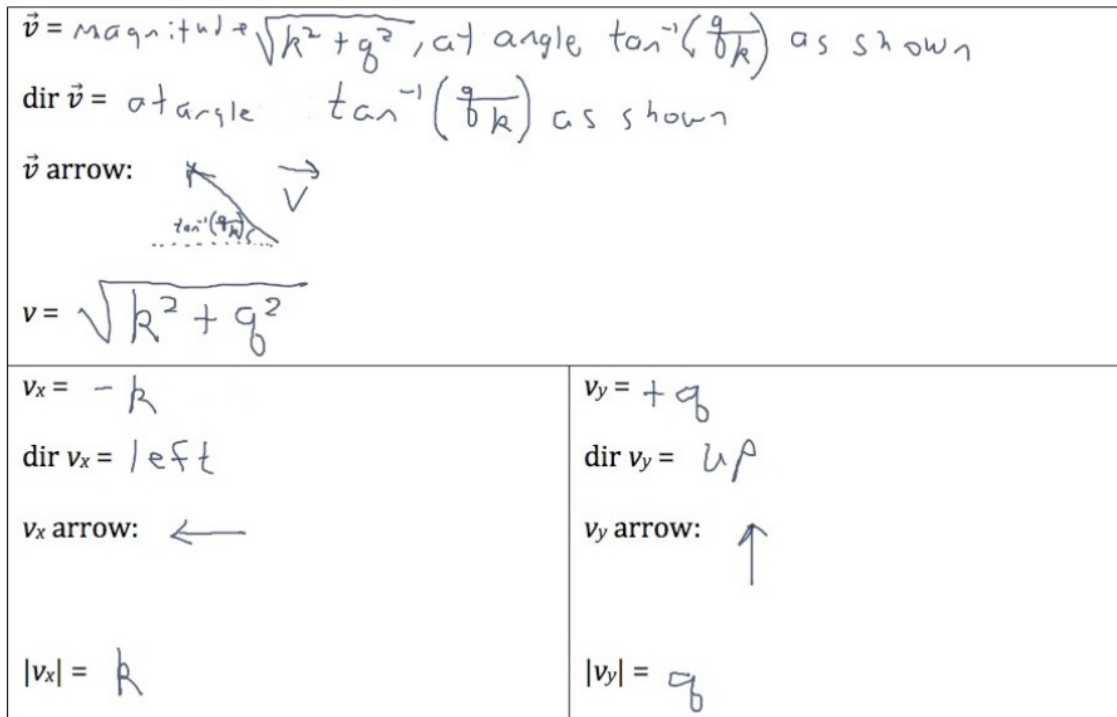 v⃗ = magnitude √(k² + q²), at angle tan⁻¹(q/k) as shown
dir v⃗ = at angle tan⁻¹(q/k) as shown
v⃗ arrow: V⃗
tan⁻¹(q/k)
v = √(k² + q²)
vₓ = -k
dir vₓ = left
vₓ arrow:
|vₓ| = k
v_y = +q
dir v_y = up
v_y arrow:
|v_y| = q